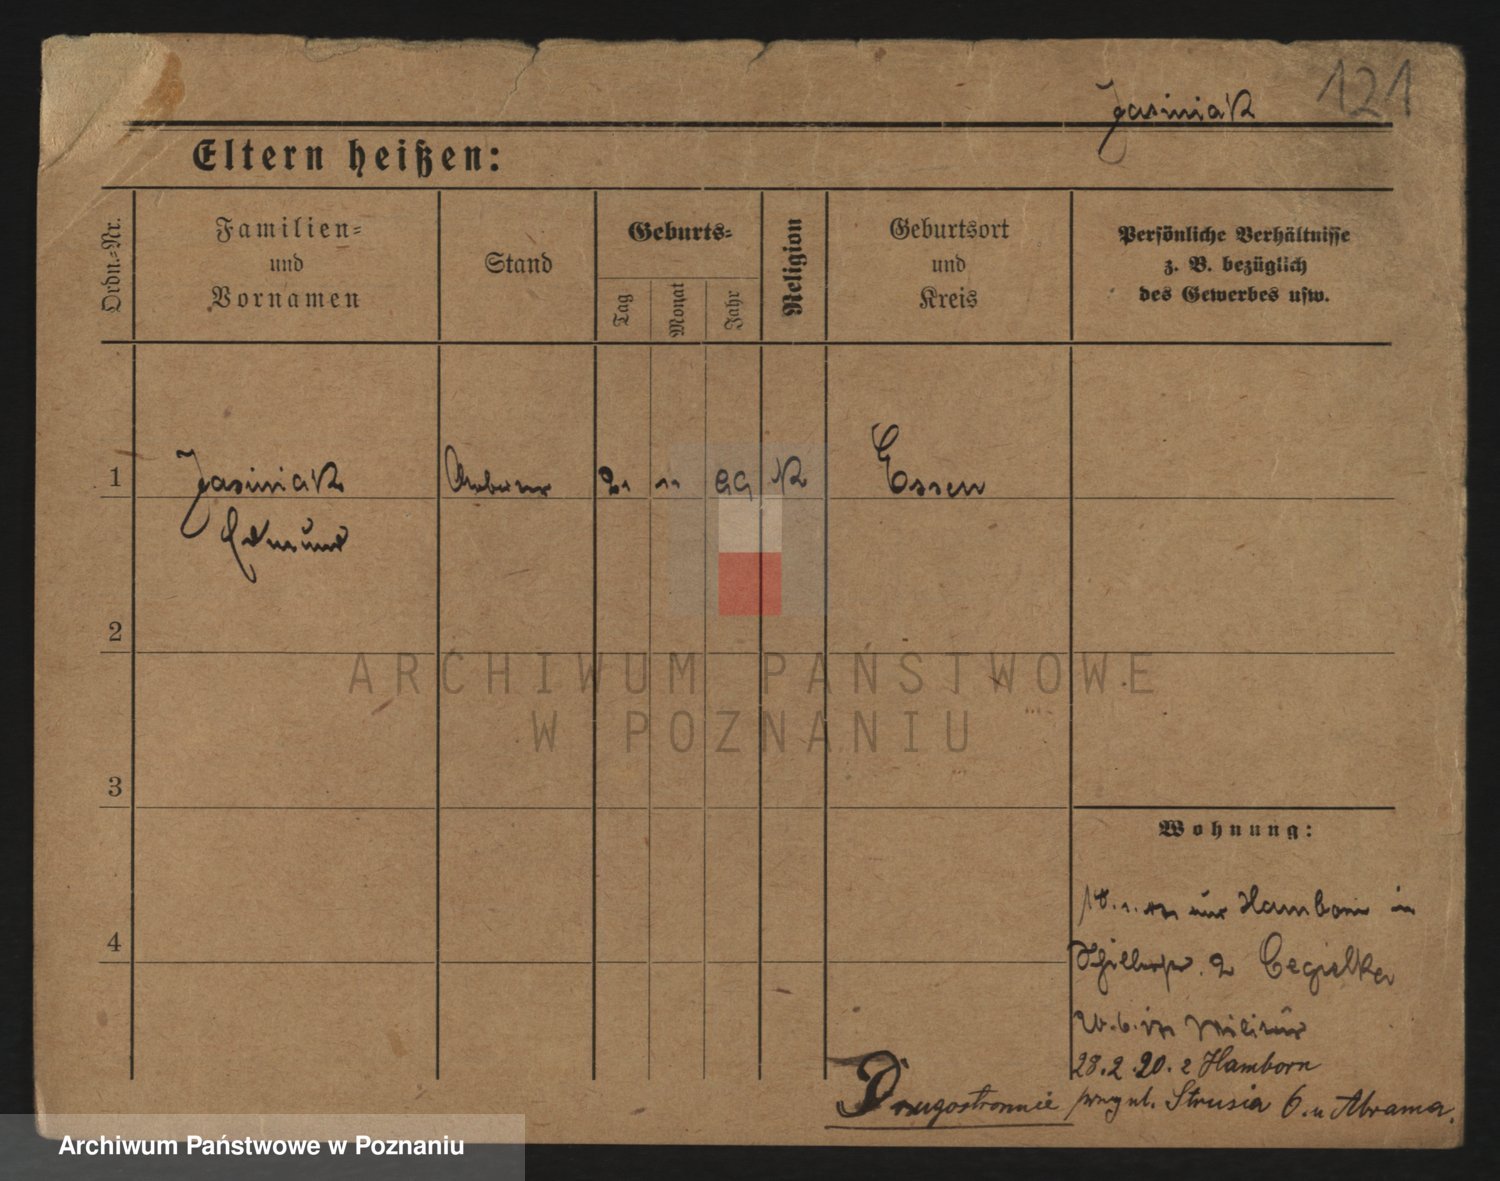 121
Jasiniak
Eltern heißen:
Ordn.-Nr.
Familien-
und
Vornamen
Stand
Geburts-
Tag
Monat
Jahr
Religion
Geburtsort
und
Kreis
Persönliche Verhältnisse
z. B. bezüglich
des Gewerbes usw.
1 Jasiniak 99 K Essen
Edmund
2
ARCHIWUM PAŃSTWOWE
W POZNANIU
3
Wohnung:
Hamborn in
4
2 Cegielka
Militär
28.2.20. z Hamborn
Drugostronnie przy ul. Strusia 6. u Abrama.
Archiwum Państwowe w Poznaniu